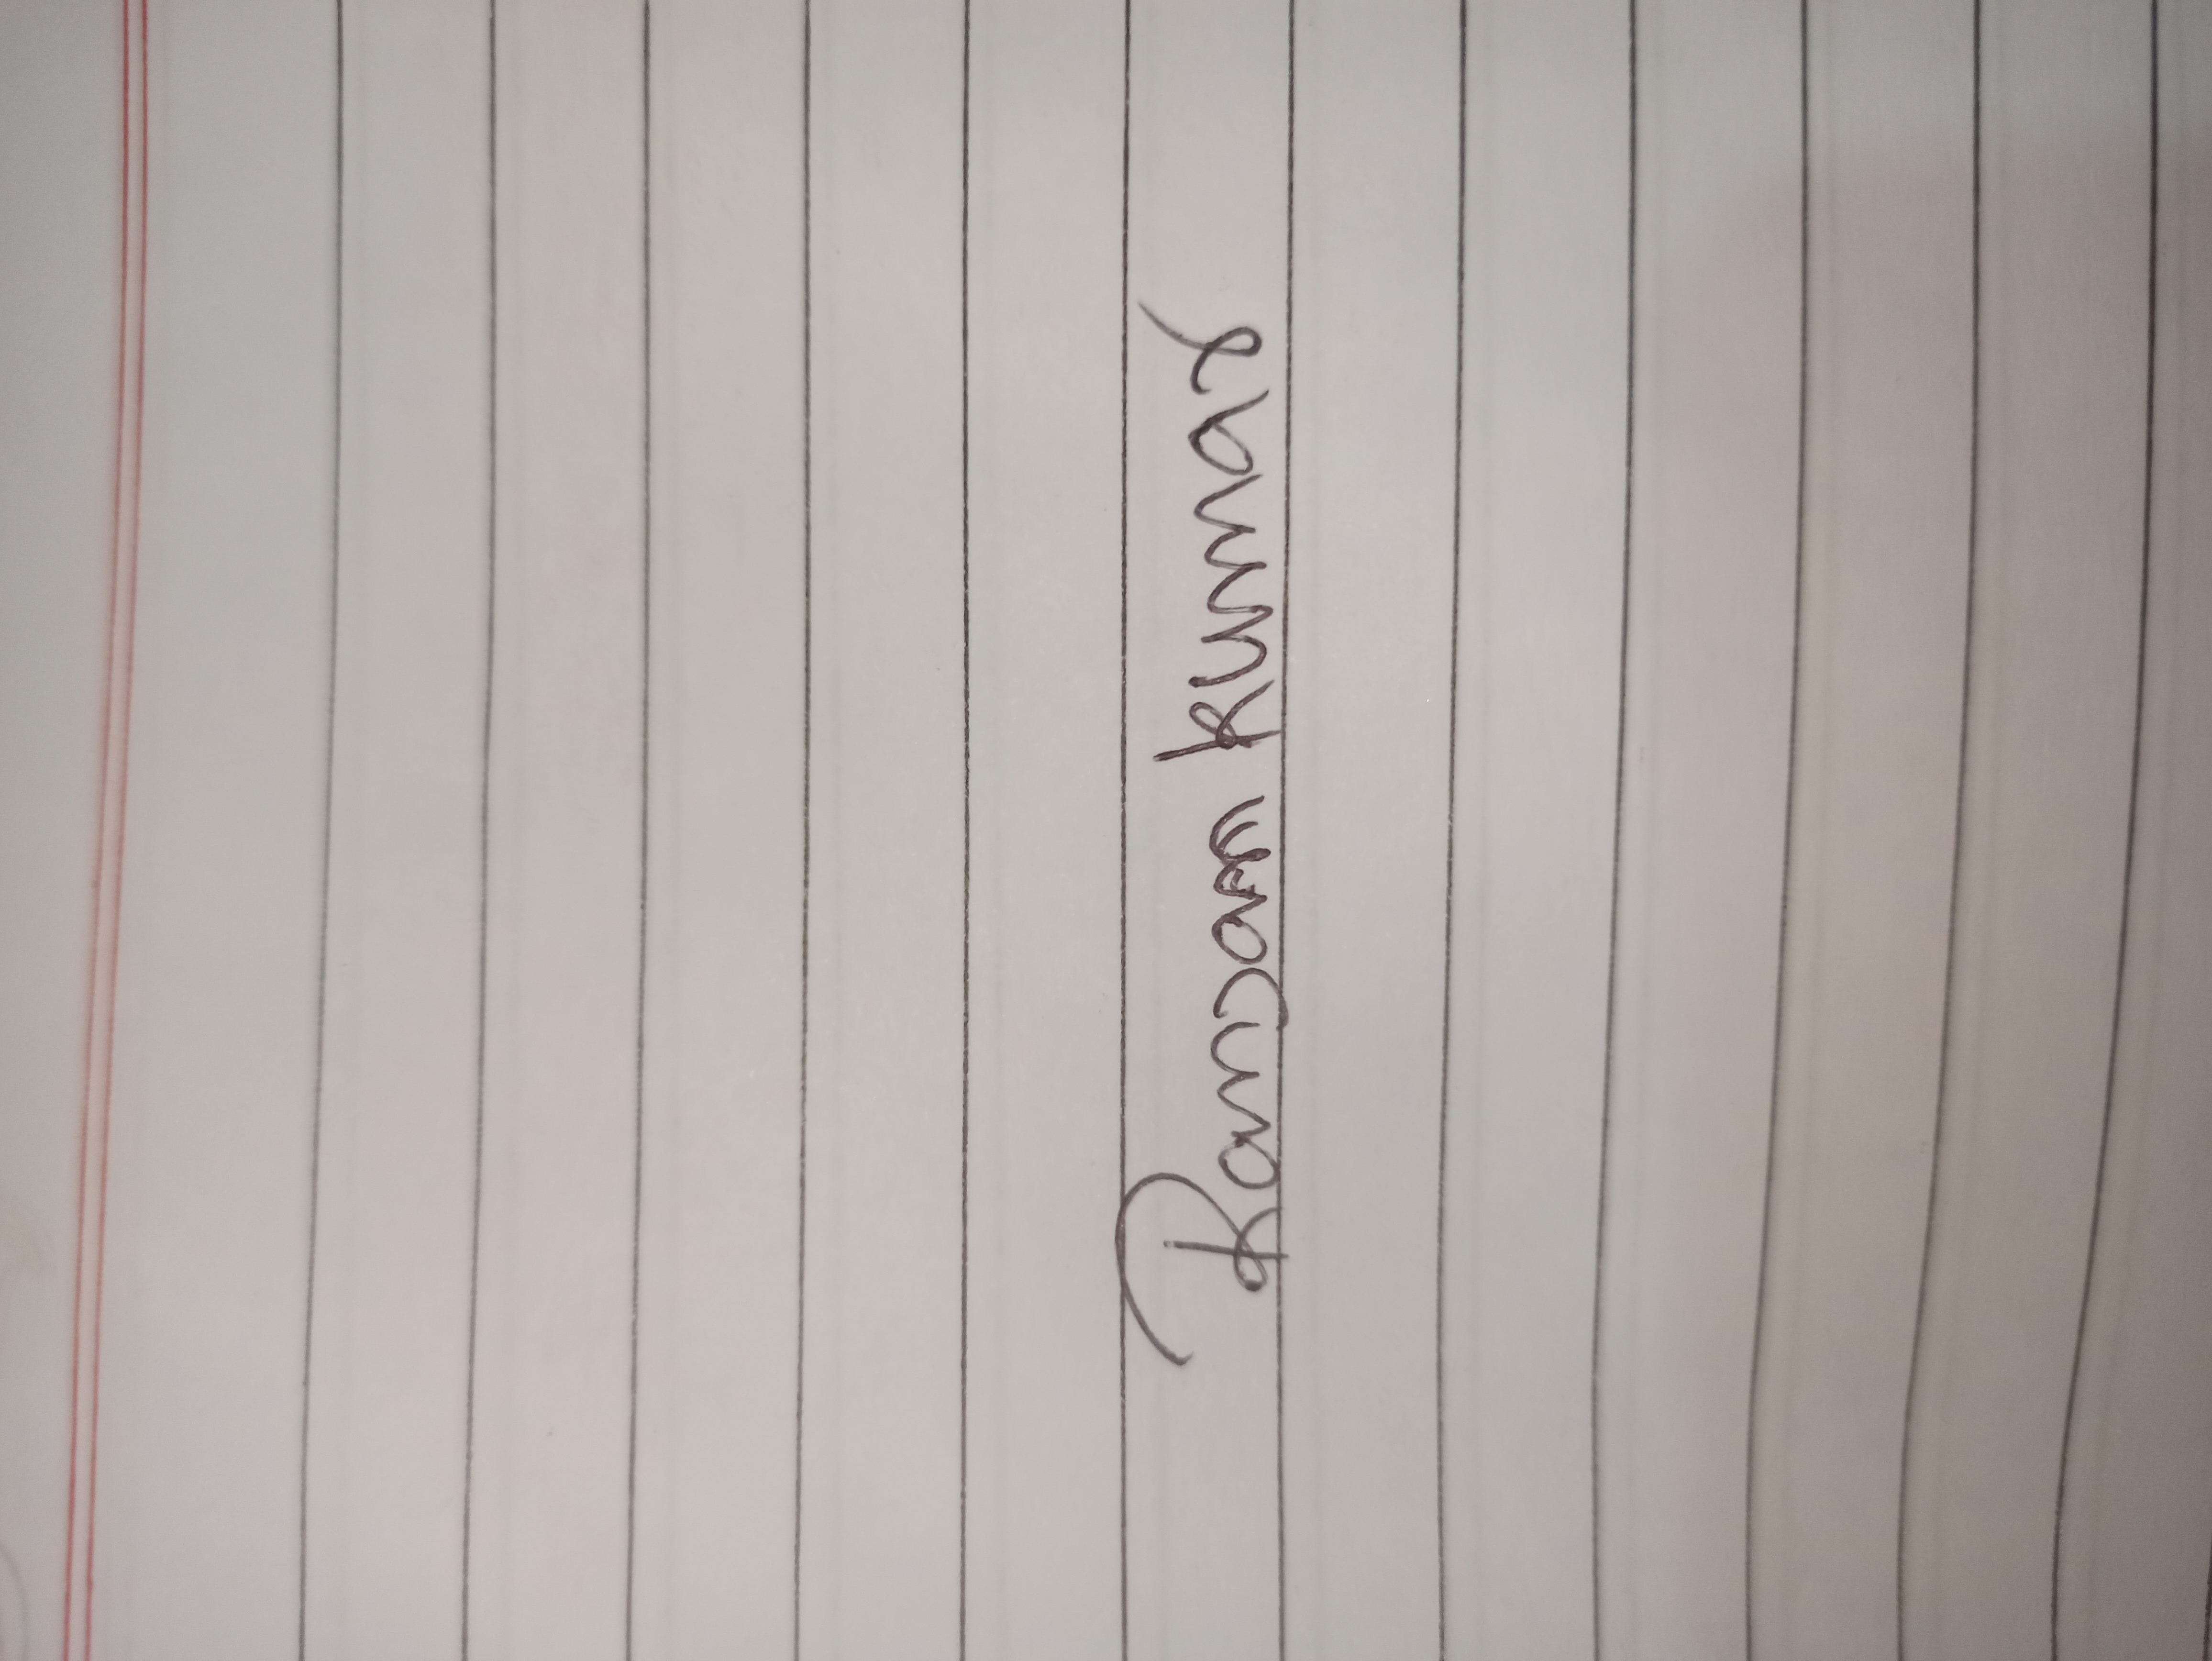 Ranjan kumar